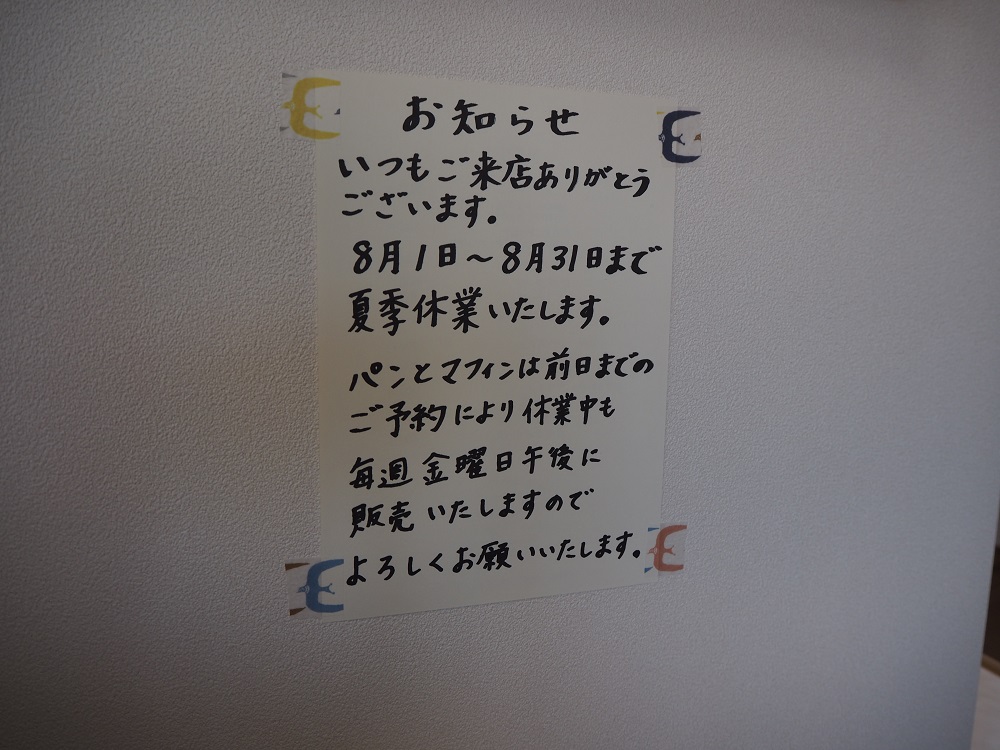 お知らせ
いつもご来店ありがとう
ございます。
8月1日～8月31日まで
夏季休業いたします。
パンとマフィンは前日までの
ご予約により休業中も
毎週金曜日午後に
販売いたしますので
よろしくお願いいたします。